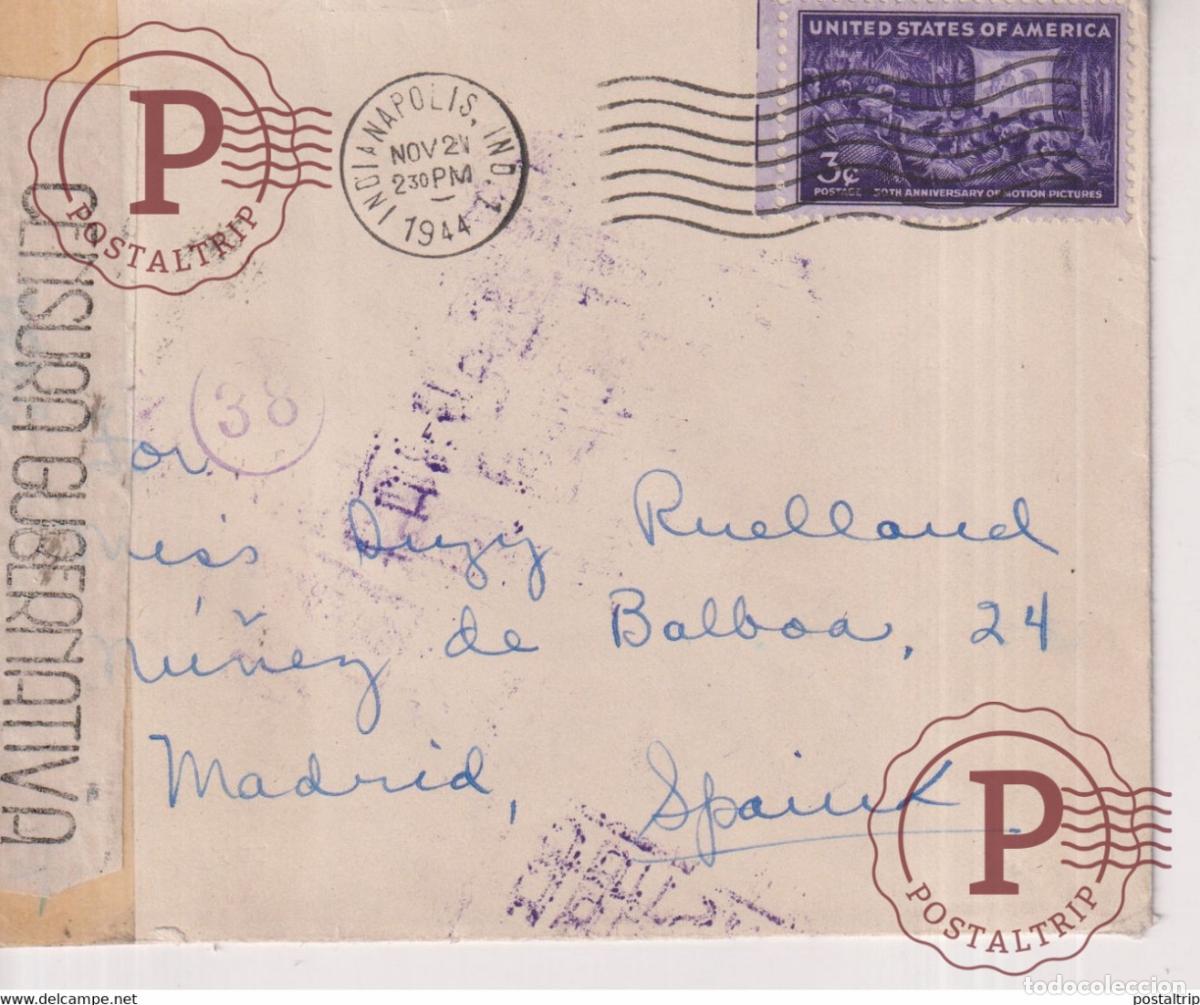 UNITED STATES OF AMERICA
3¢
POSTAGE 50TH ANNIVERSARY OF MOTION PICTURES
INDIANAPOLIS, IND. 1
NOV 21
2 30 PM
1944
P
POSTALTRIP
CENSURA GUBERNATIVA
38
or
iss Suzy Ruelland
Núñez de Balboa, 24
Madrid, Spain
P
POSTALTRIP
todocoleccion
delcampe.net
postaltrip